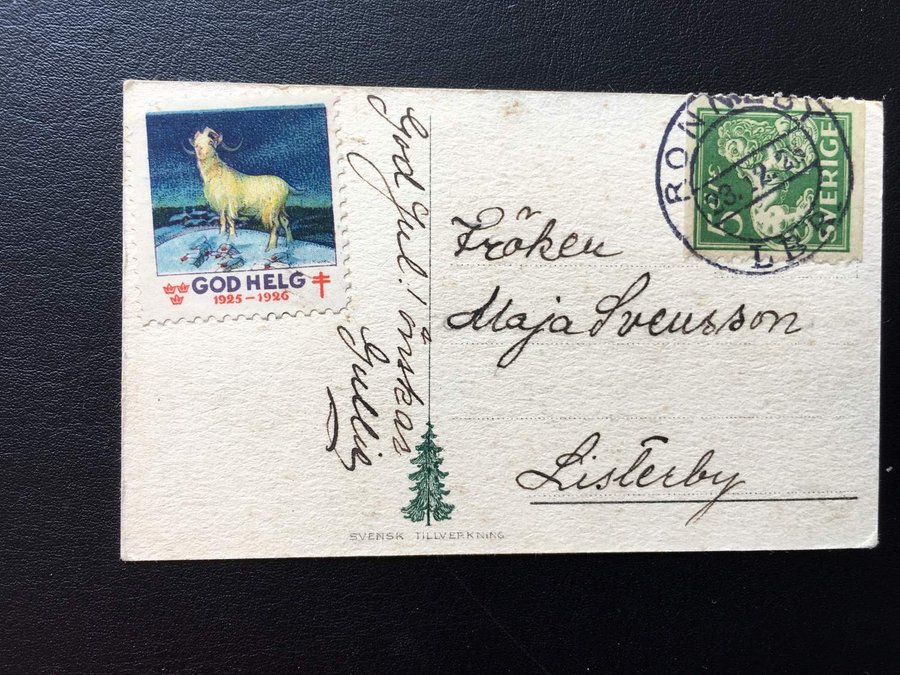 GOD HELG
1925-1926
God Jul! önskas
Gullie
RONNEBY
23.12.25
LBR
SVERIGE
Fröken
Maja Svensson
Listerby
SVENSK TILLVERKNING